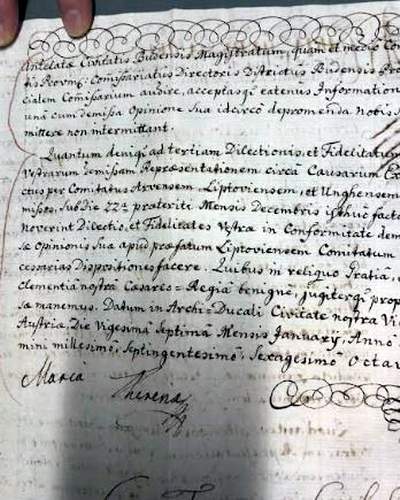 Antelatæ Civitatis Budensis Magistratum, quam et medio Com
tis Provin: Commissariatus Directoris Districtus Budensis Pro
cialem Comissarium audire, acceptasq; eatenus Information
unà cum demissa Opinione Sua idcircò depromenda Nobis S
mittere non intermittant.
Quantum deniq; ad tertiam Dilectionis, et Fidelitatum
Vestrarum demissam Repræsentationem circà Causarum
ctus per Comitatus Arvensem, Liptoviensem, et Unghensem
missos, Sub Die 22ª præteriti Mensis Decembris isthuc facta
noverint Dilectio, et Fidelitates Vestræ in Conformitate dem
sæ Opinionis Suæ apud præfatum Liptoviensem Comitatum
cessarias Dispositiones facere. Quibus in reliquo Gratiâ,
Clementiâ nostrâ Cæsareo=Regiâ benignè, jugiterq; prop
sæ manemus. Datum in Archi=Ducali Civitate nostra Vi
Austriæ, Die Vigesima Septima Mensis January, Anno
mini millesimo, Septingentesimo, Sexagesimo Octav
Maria Theresia